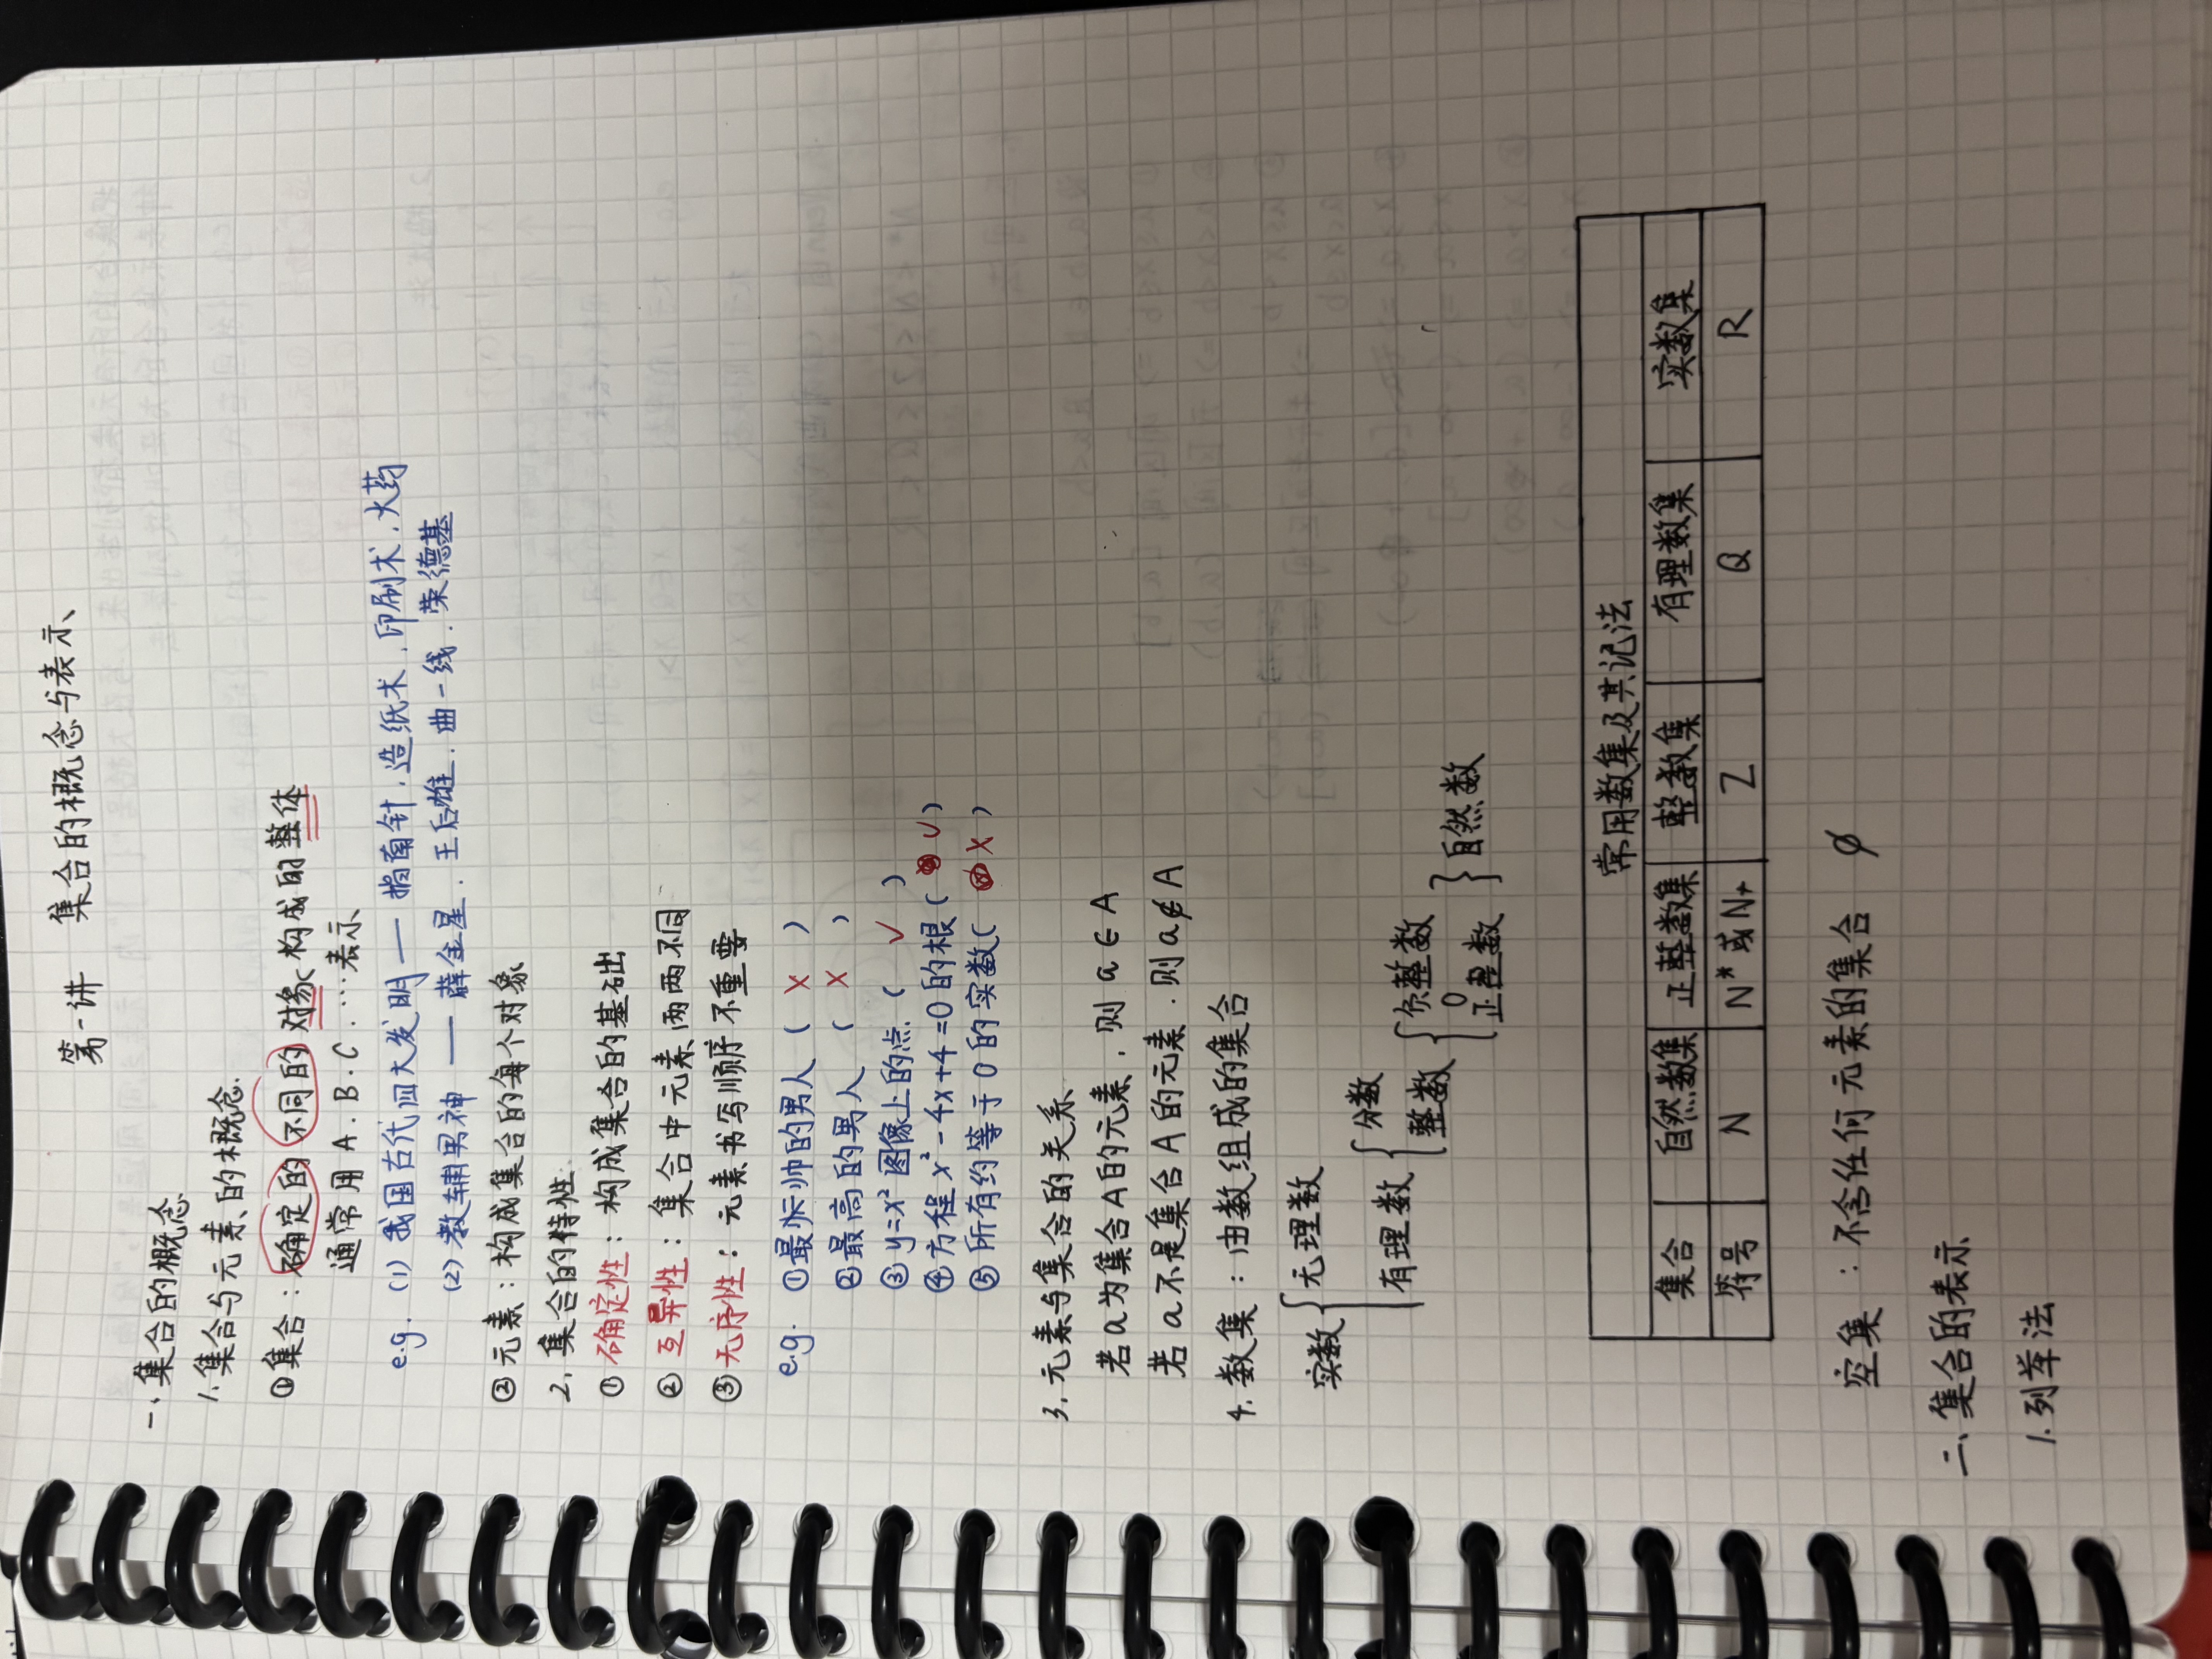 第一讲 集合的概念与表示、
一、集合的概念
1.集合与元素的概念.
①集合：确定的 不同的 对象 构成的整体
通常用 A.B.C.…表示
e.g. (1) 我国古代四大发明 — 指南针.造纸术.印刷术.火药
(2) 教辅男神 —— 薛金星.王后雄.曲一线.荣德基
②元素：构成集合的每个对象
2.集合的特性.
① 确定性：构成集合的基础
② 互异性：集合中元素两两不同
③ 无序性：元素书写顺序不重要
e.g. ①最帅的男人（ X ）
②最高的男人（ X ）
③y=x²图像上的点（ √ ）
④方程x²-4x+4=0的根（ √）
⑤所有约等于0的实数（ X ）
3.元素与集合的关系
若a为集合A的元素，则 a∈A
若a不是集合A的元素.则a∉A
4.数集：由数组成的集合
实数{无理数
有理数{分数
整数{负整数
0
正整数}自然数
常用数集及其记法
集合 自然数集 正整数集 整数集 有理数集 实数集
符号 N N*或N+ Z Q R
空集：不含任何元素的集合 ∅
二、集合的表示
1.列举法